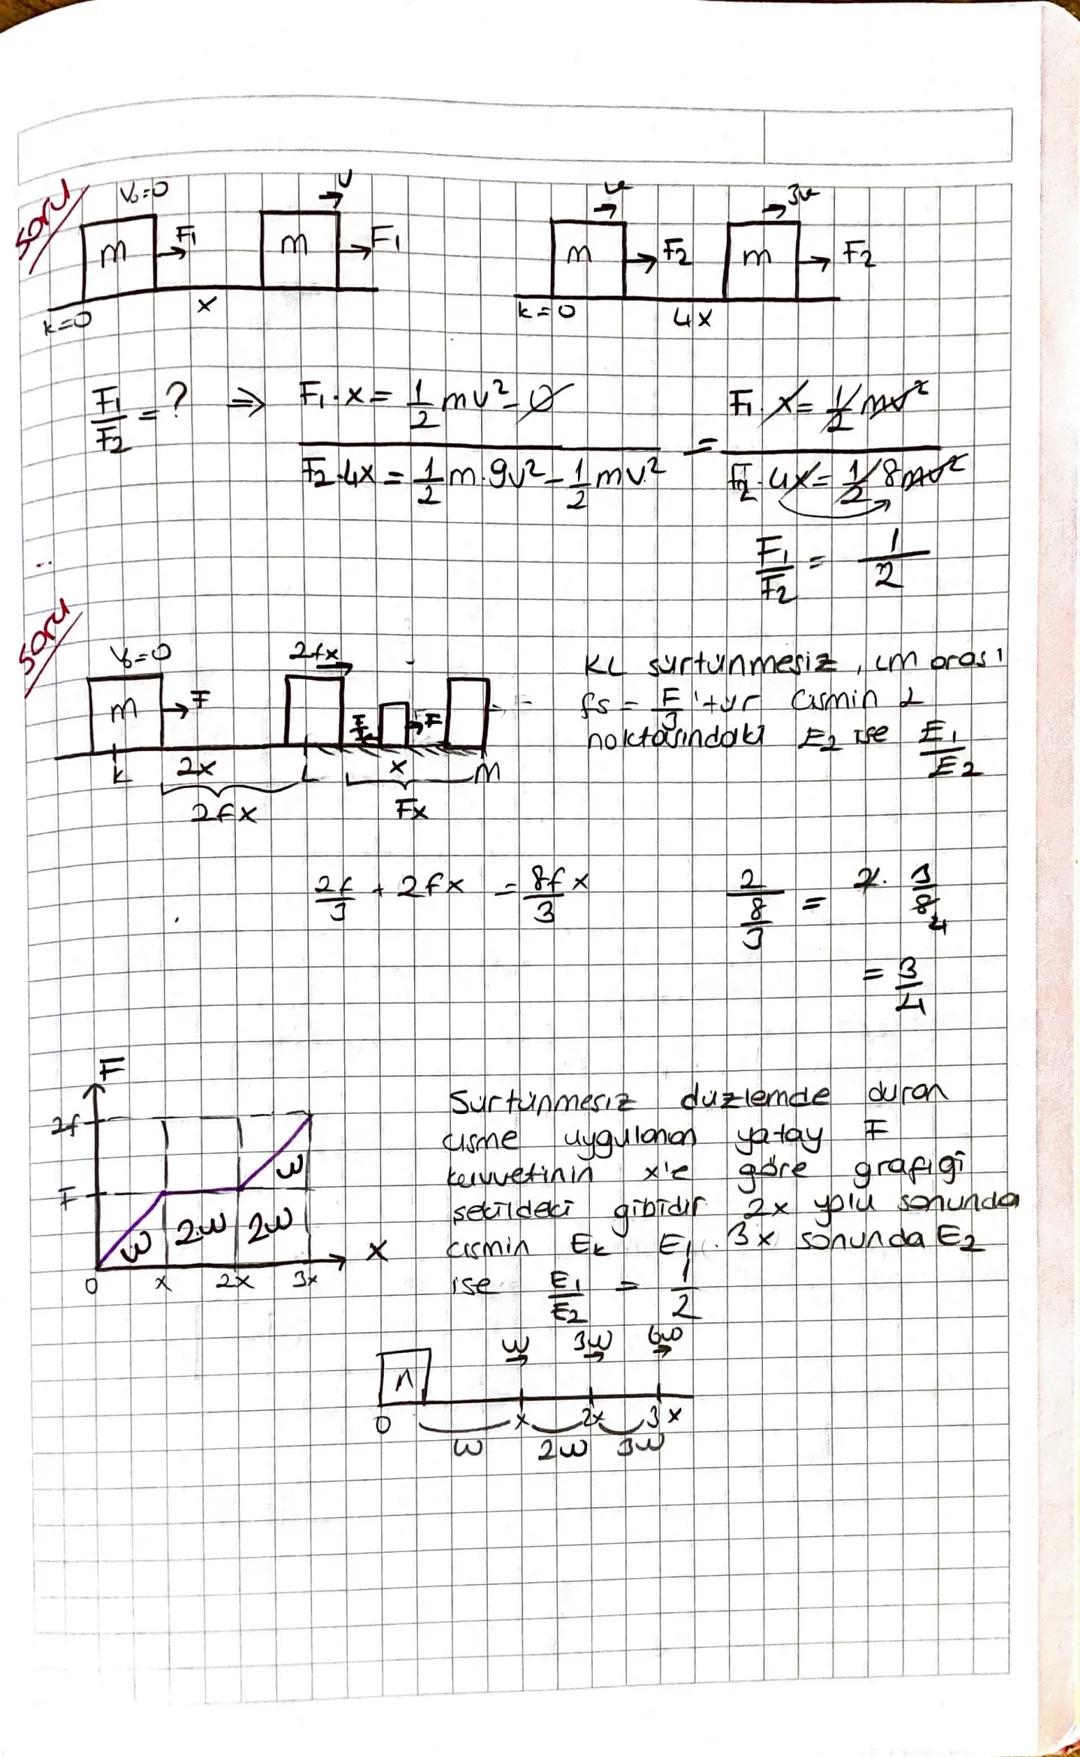 Soru
V₀=0
m
F₁
m
v
F₁
k=0
x
m
v
F₂
m
3v
F₂
k=0
4x
F₁/F₂ = ? ⇒ F₁.x = 1/2 mv² - 0 / F₂.4x = 1/2 m.9v² - 1/2 mv² = F₁.x = 1/2 mv² / F₂.4x = 1/2 8mv²
F₁/F₂ = 1/2
Soru
V₀=0
m
F
2fx
F
k
2x
L
x
M
2fx
Fx
KL sürtünmesiz, LM arası
fs = F/3 'tür Cismin L
noktasındaki E₂ ise E₁/E₂
2f/3 + 2fx = 8fx/3
2/(8/3) = 2. 3/8 4
= 3/4
F
2f
F
W
2W
2W
W
0
x
2x
3x
x
Sürtünmesiz düzlemde duran
cisme uygulanan yatay F
kuvvetinin x'e göre grafiği
şekildeki gibidir 2x yolu sonunda
cismin Ek E₁. 3x sonunda E₂
ise E₁/E₂ = 1/2
W
3W
6W
0
x
2x
3x
W
2W
3W